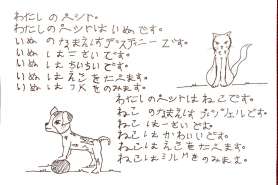 わたしのペット。
わたしのペットはいぬです。
いぬのなまえはデスティニーです。
いぬは一さいです。
いぬはちいちいです。
いぬはえさをたべます。
いぬは水をのみます。
わたしのペットはねこです。
ねこのなまえはです。
ねこは一さいです。
ねこはかわいいです。
ねこはえさをたべます。
ねこはミルクをのみます。